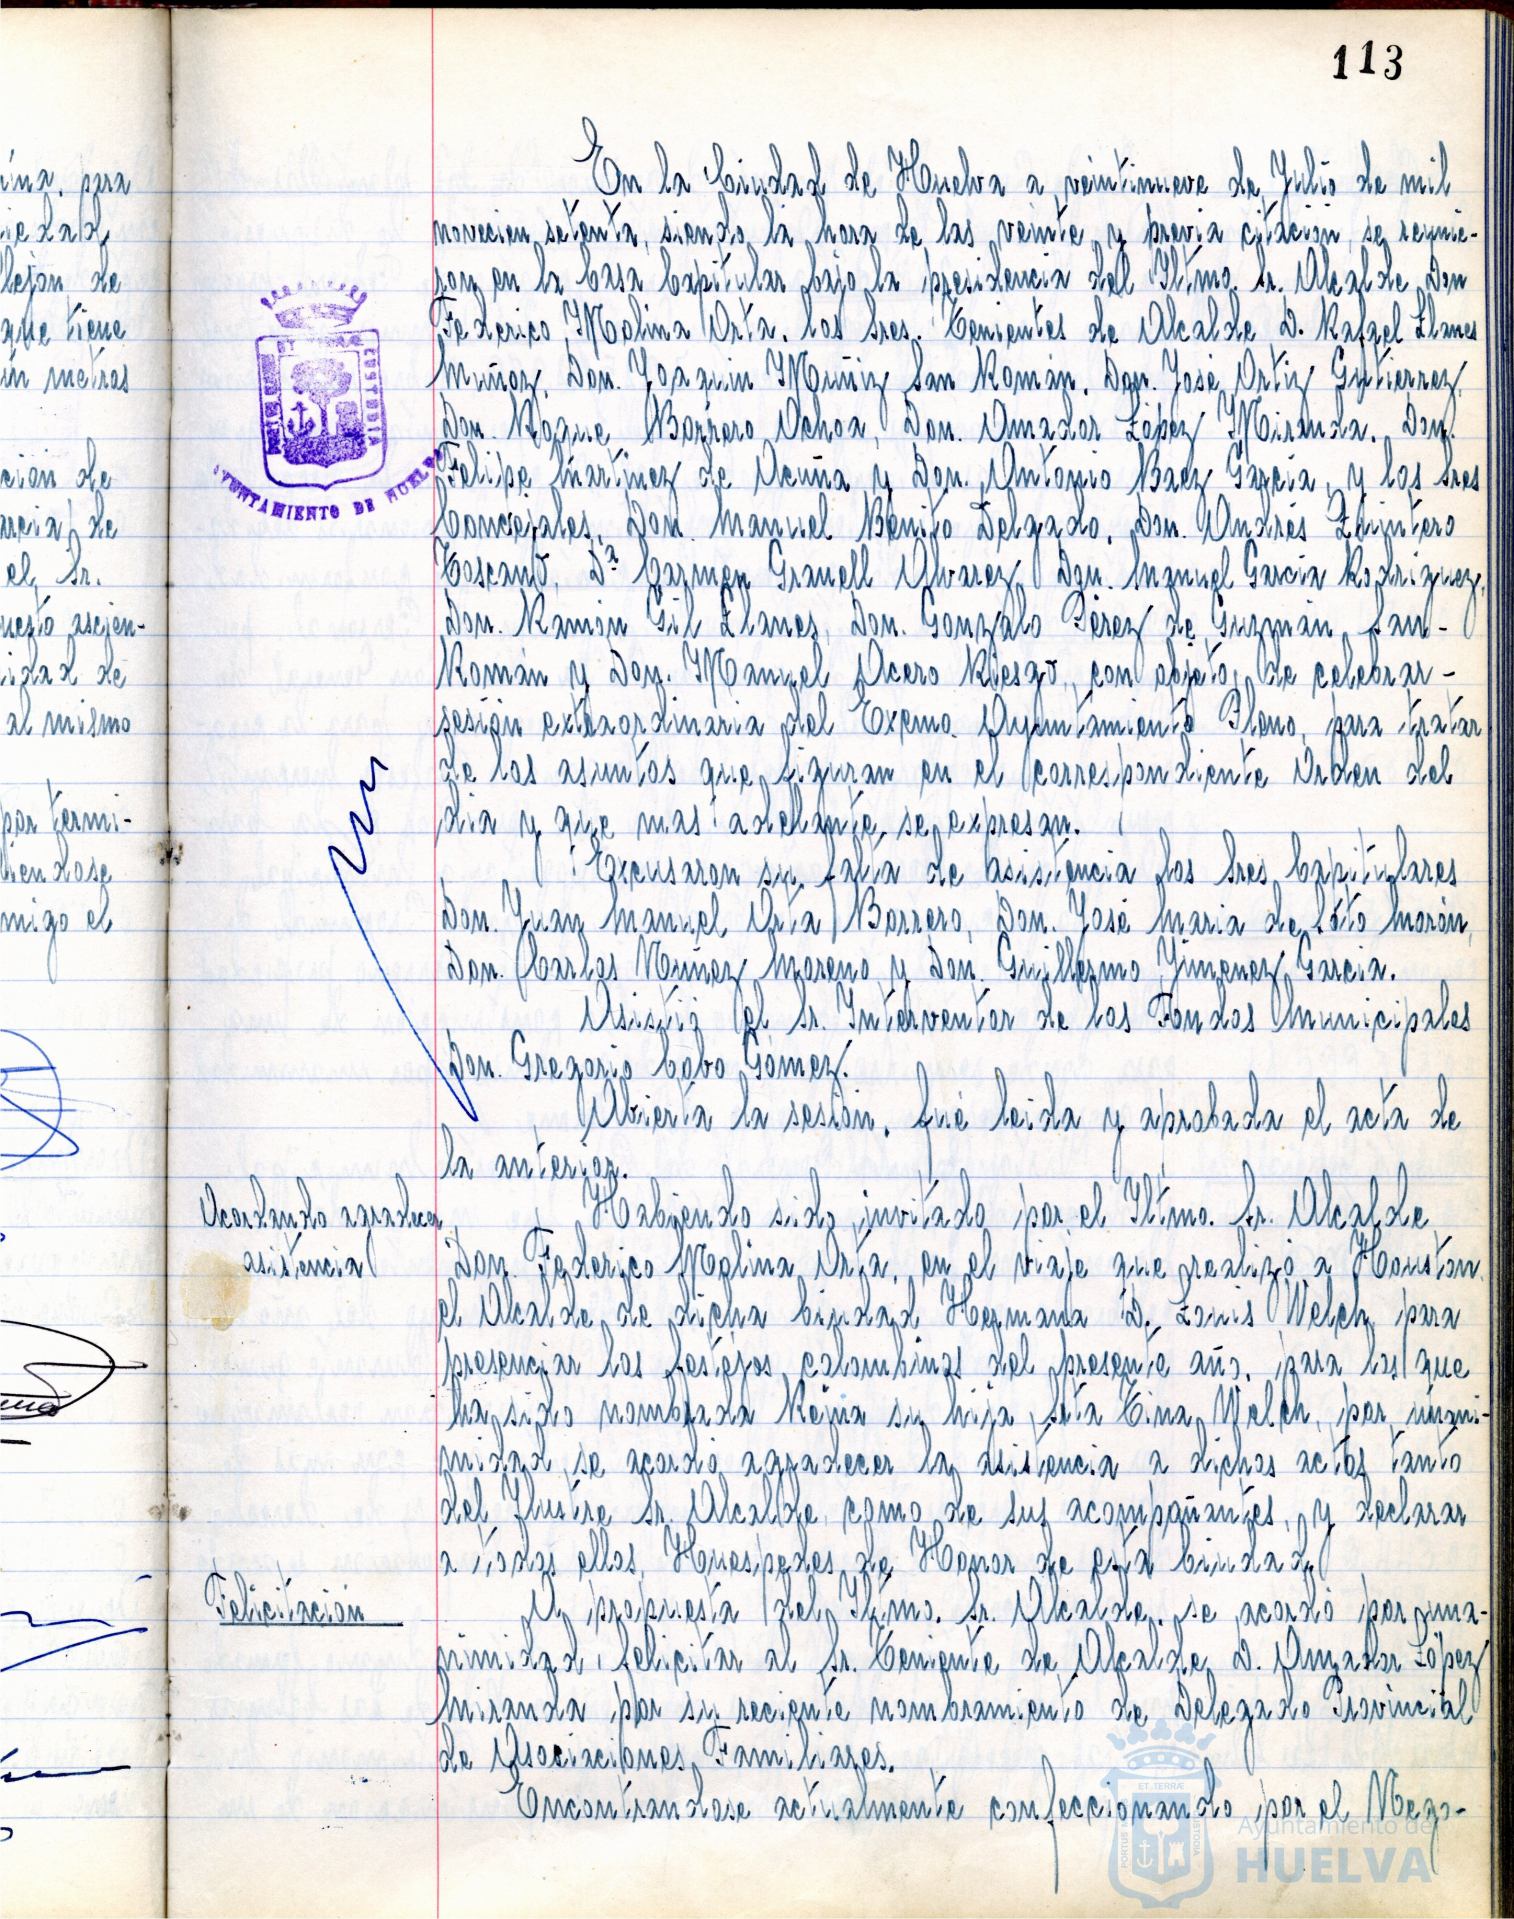 113
ina, para
iedad,
lejon de
que tiene
in metros
cion de
arcia, de
el, Sr.
uesto ascien-
idad de
al mismo
por termi-
liendose
migo el
En la Ciudad de Huelva a veintinueve de Julio de mil
novecien setenta, siendo la hora de las veinte y previa citación, se reunie-
ron en la Casa Capitular bajo la presidencia del Iltmo. Sr. Alcalde Don
Federico Molina Orta, los Sres. Tenientes de Alcalde D. Rafael Llanes
Muñoz, Don. Joaquin Muñiz San Román, Don. José Ortiz Gutierrez,
Don. Roque Barrero Ochoa, Don. Amador López Miranda, Don.
Felipe Martinez de Acuña y Don. Antonio Baez Garcia, y los Sres
Concejales, Don. Manuel Benito Delgado, Don. Andrés Quintero
Toscano, Dª Carmen Granell Alvarez, Don. Manuel Garcia Rodriguez,
Don. Ramón Gil Llanes, Don. Gonzalo Pérez de Guzmán San-
Román y Don. Manuel Acero Riesgo, con objeto, de celebrar-
sesión extraordinaria del Excmo. Ayuntamiento Pleno, para tratar
de los asuntos que figuran en el correspondiente Orden del
dia y que mas adellante, se expresan.
Excusaron su falta de asistencia los Sres Capitulares
Don. Juan Manuel Orta Barrero, Don. José Maria de Soto Morón,
Don. Carlos Nuñez Moreno y Don. Guillermo Jimenez Garcia.
Asistió el Sr. Interventor de los Fondos Municipales
Don. Gregorio Cabo Gómez.
Abierta la sesión, fué leida y aprobada el acta de
la anterior.
Acordando agradecer
asistencia
Habiendo sido, invitado por el Iltmo. Sr. Alcalde
Don. Federico Molina Orta, en el viaje que realizó a Houston,
el Alcalde de dicha Ciudad Hermana D. Louis Welch, para
presenciar los festejos colombinos del presente año, para los que
ha sido nombrada Reina su hija, Srta Tina Welch, por, unani-
midad, se acordó agradecer la asistencia a dichos actos tanto
del Ilustre Sr. Alcalde, como de sus acompañantes, y declarar
a todos ellos, Huespedes de Honor de esta Ciudad.
Felicitación
A propuesta del Iltmo. Sr. Alcalde, se acordó por una-
nimidad, felicitar al Sr. Teniente de Alcalde D. Amador López
Miranda por su reciente nombramiento de Delegado Provincial
de Asociaciones Familiares.
Encontrandose actualmente confeccionando por el Nego-
ET TERRÆ CUSTODIA
AYUNTAMIENTO DE HUELVA
ET TERRÆ
PORTUS M
CUSTODIA
Ayuntamiento de
HUELVA